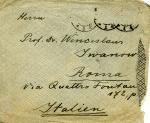 Herrn
Prof. Dr. Wenceslaus
Iwanow
Roma
Via Quattro Fontane
172, p
Italien